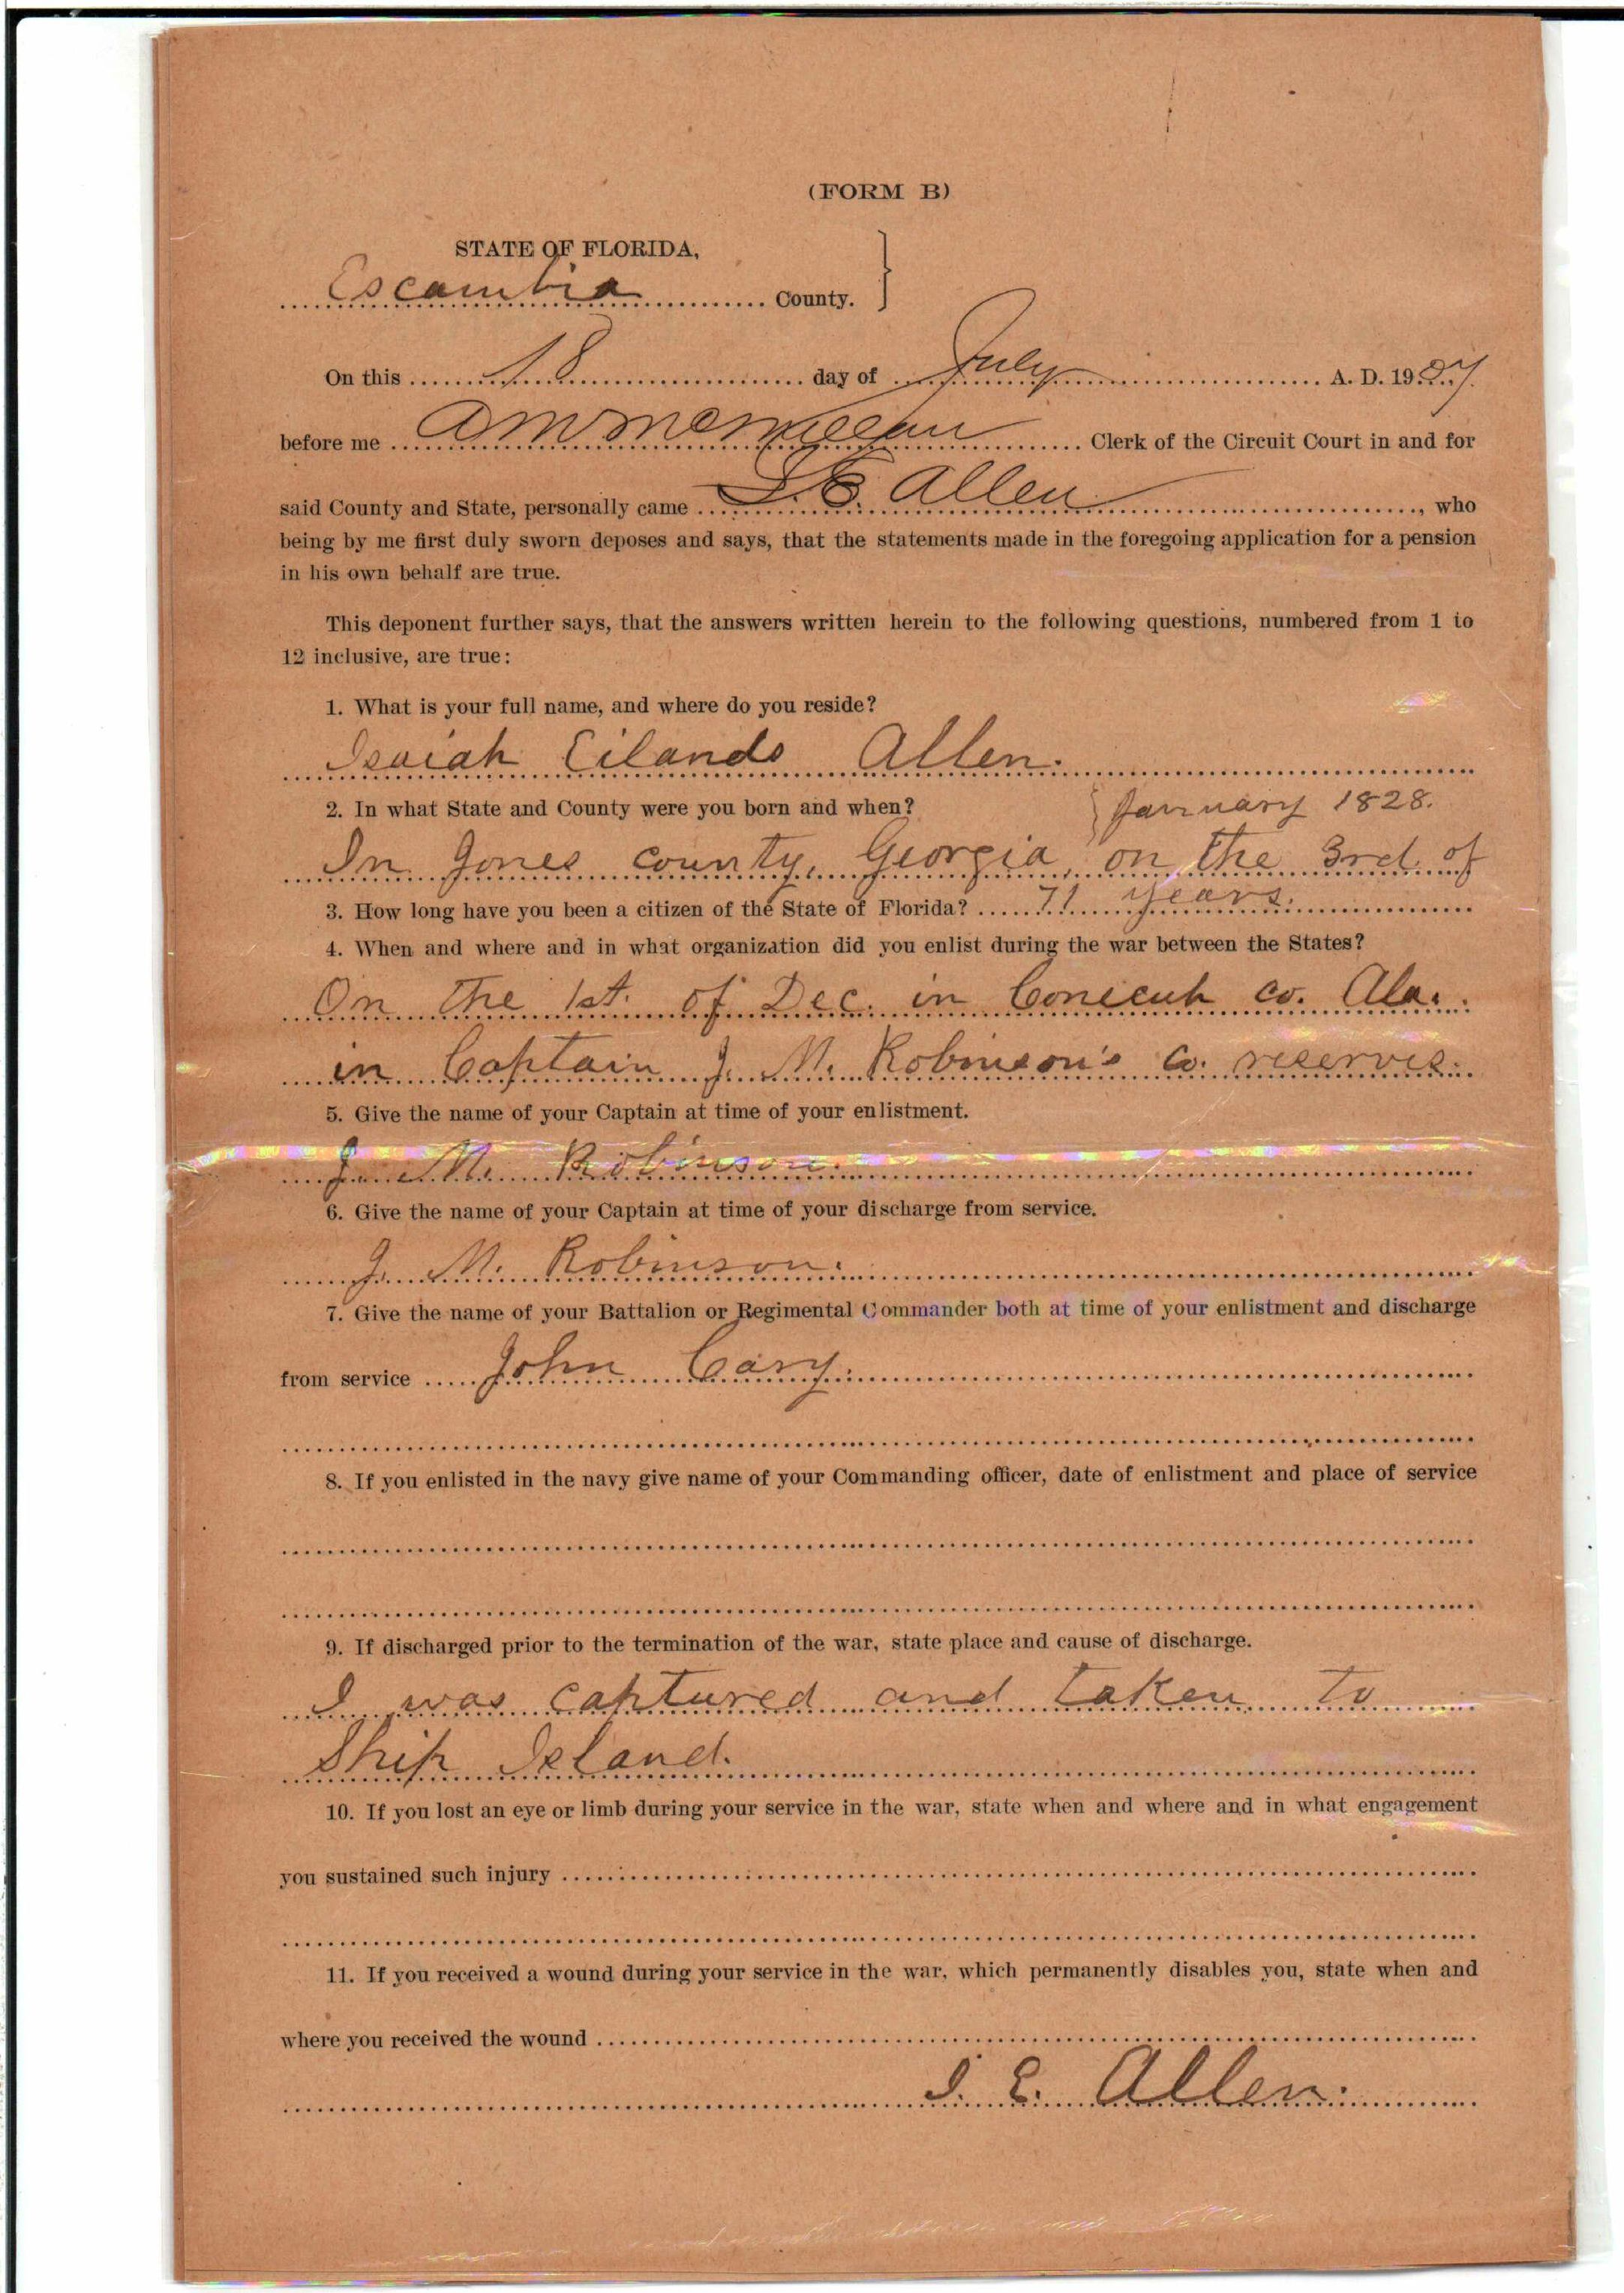 (FORM B)
STATE OF FLORIDA,
Escambia County.
On this 18 day of July A. D. 1907.
before me A M McMillan Clerk of the Circuit Court in and for
said County and State, personally came I. E. Allen, who
being by me first duly sworn deposes and says, that the statements made in the foregoing application for a pension
in his own behalf are true.
This deponent further says, that the answers written herein to the following questions, numbered from 1 to
12 inclusive, are true:
1. What is your full name, and where do you reside?
Isaiah Eilands Allen.
2. In what State and County were you born and when? January 1828.
In Jones county, Georgia, on the 3rd. of
3. How long have you been a citizen of the State of Florida? 71 years.
4. When and where and in what organization did you enlist during the war between the States?
On the 1st. of Dec. in Conecuh co. Ala.
in Captain J. M. Robinson's co. reserves.
5. Give the name of your Captain at time of your enlistment.
J. M. Robinson.
6. Give the name of your Captain at time of your discharge from service.
J. M. Robinson.
7. Give the name of your Battalion or Regimental Commander both at time of your enlistment and discharge
from service John Cary.
8. If you enlisted in the navy give name of your Commanding officer, date of enlistment and place of service
9. If discharged prior to the termination of the war, state place and cause of discharge.
I was captured and taken to
Ship Island.
10. If you lost an eye or limb during your service in the war, state when and where and in what engagement
you sustained such injury
11. If you received a wound during your service in the war, which permanently disables you, state when and
where you received the wound
I. E. Allen.